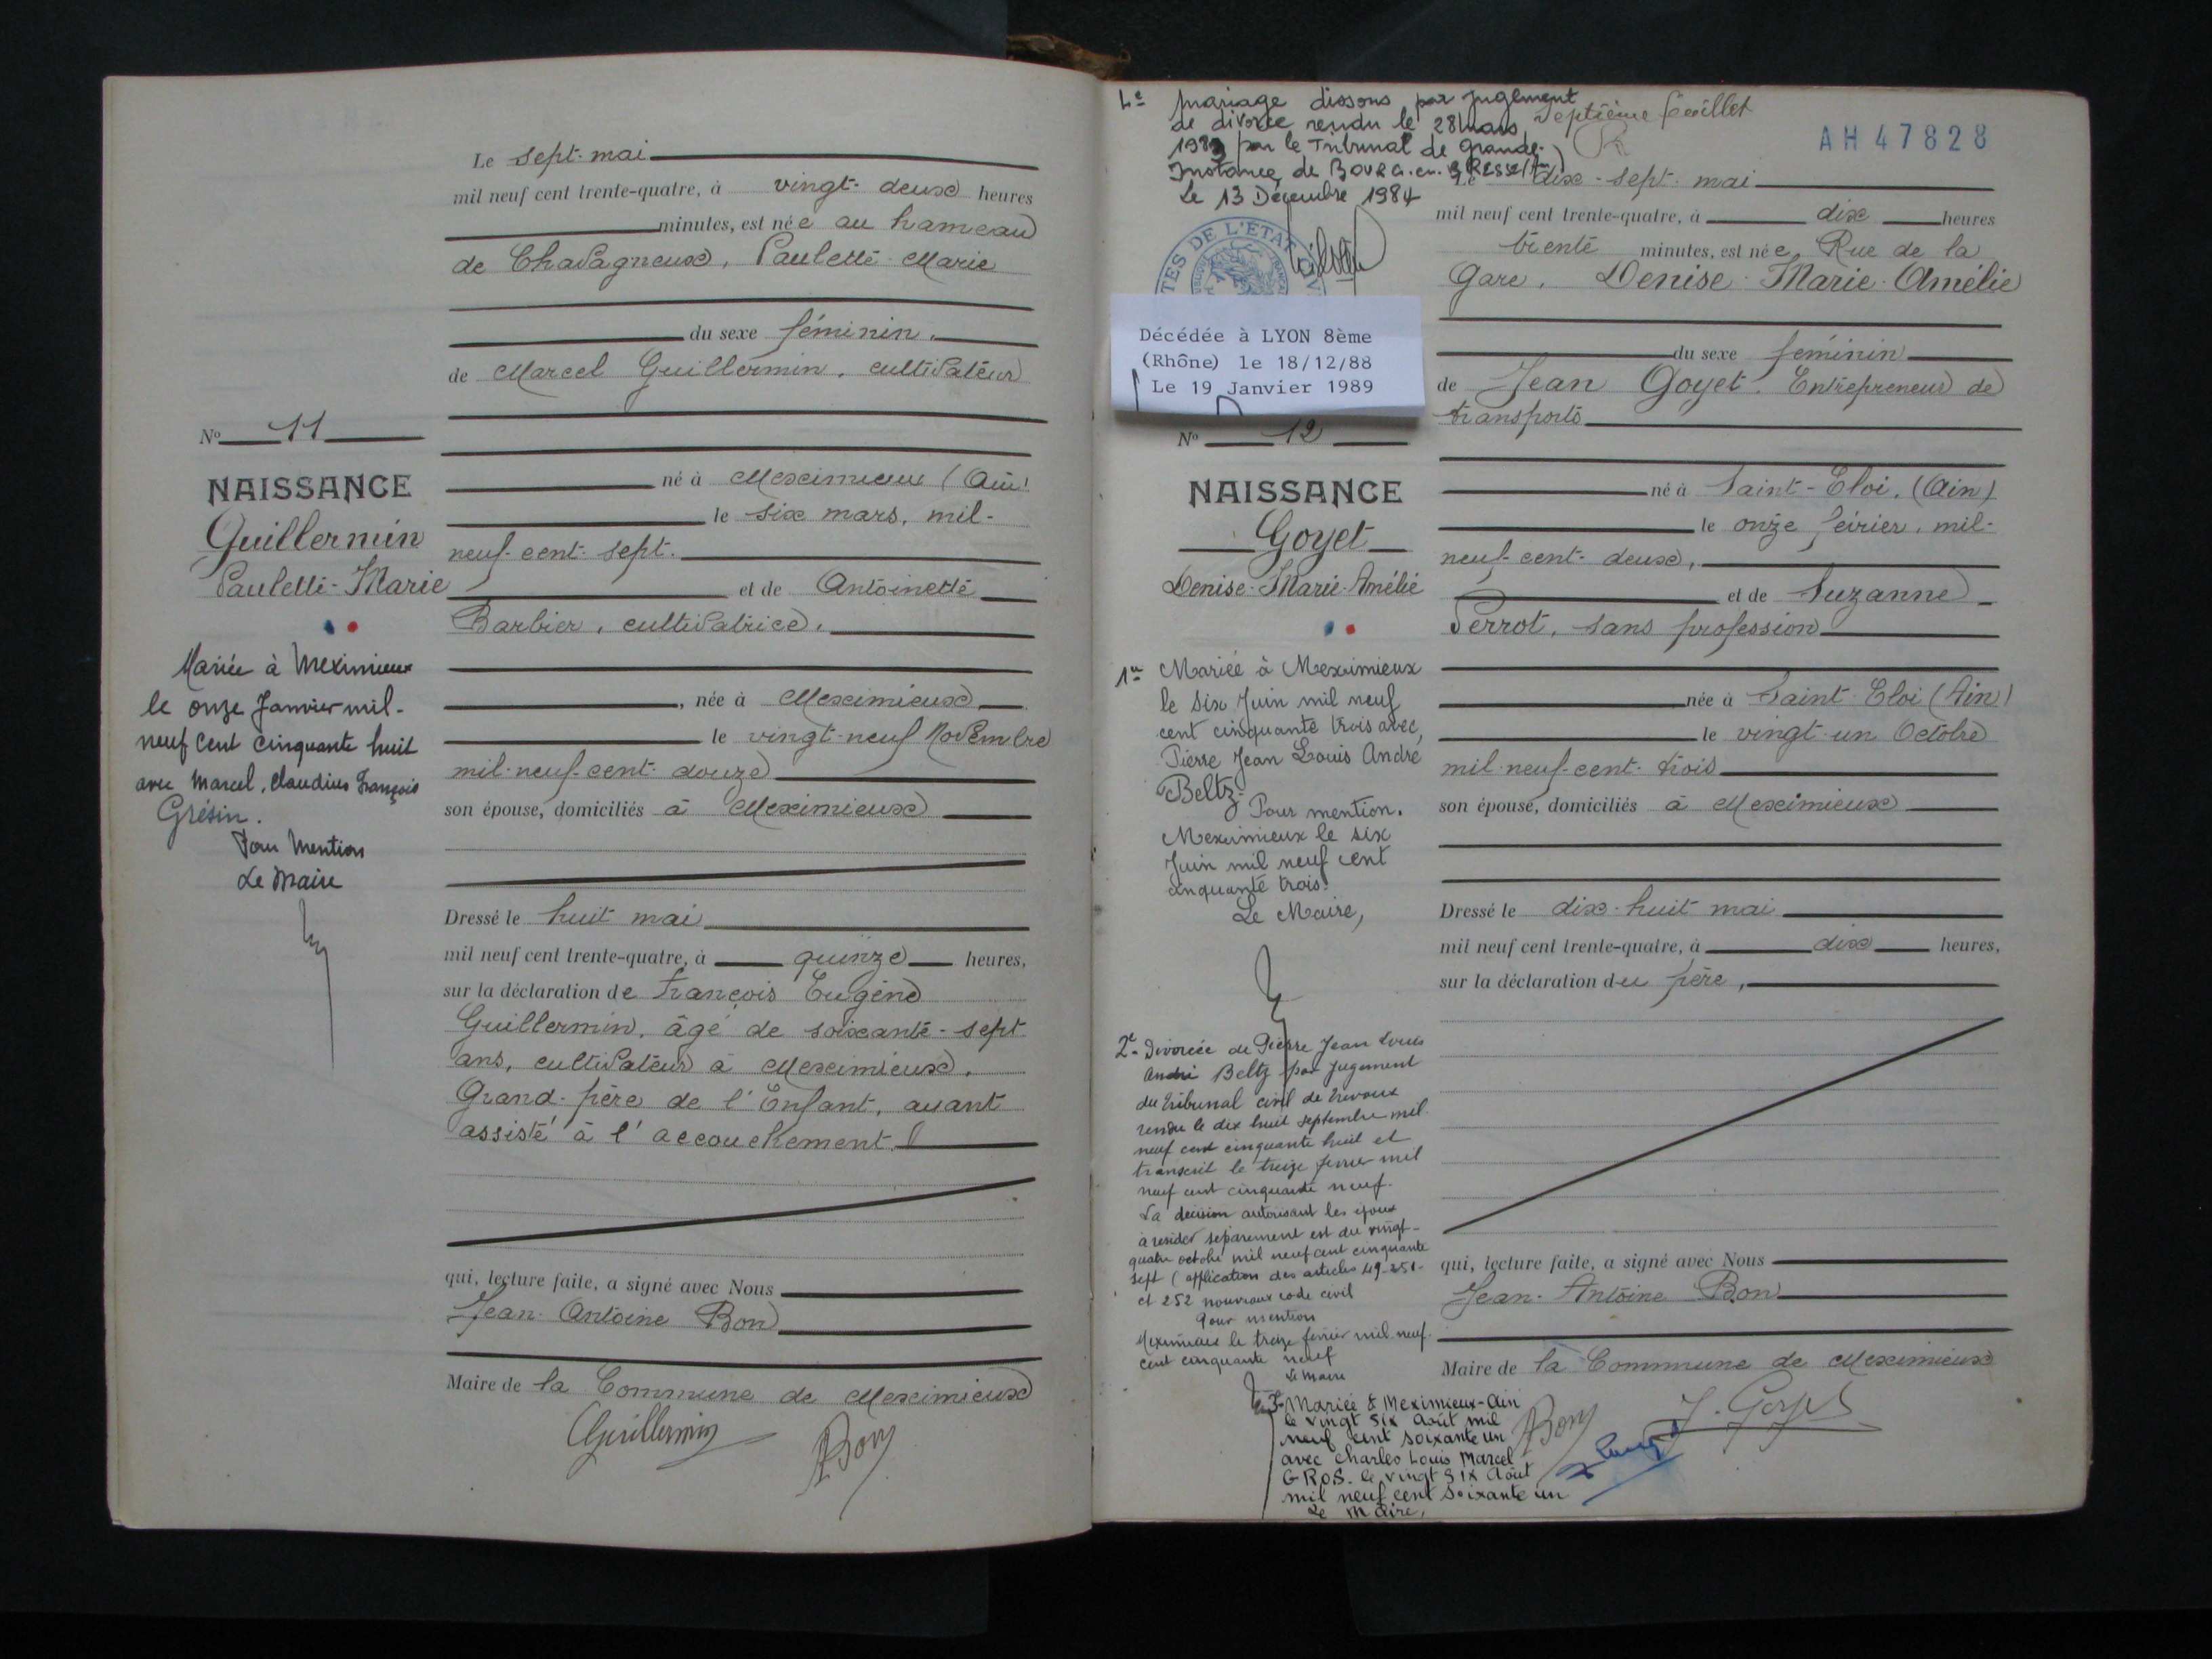 Le sept mai
mil neuf cent trente-quatre, à vingt-deux heures
minutes, est née au hameau
de Chavagneux, Paulette Marie
du sexe féminin.
de Marcel Guillermin, cultivateur
né à Meximieux (Ain)
le six mars, mil-
neuf-cent-sept.
et de Antoinette
Barbier, cultivatrice,
, née à Meximieux
le vingt-neuf Novembre
mil-neuf-cent-douze
son épouse, domiciliés à Meximieux
Dressé le huit mai
mil neuf cent trente-quatre, à quinze heures,
sur la déclaration de François Eugène
Guillermin, âgé de soixante-sept
ans, cultivateur à Meximieux,
Grand-père de l'Enfant, ayant
assisté à l'accouchement,
qui, lecture faite, a signé avec Nous
Jean-Antoine Bon
Maire de la Commune de Meximieux
Guillermin
Bon
No 11
NAISSANCE
Guillermin
Paulette-Marie
Mariée à Meximieux
le onze Janvier mil-
neuf cent cinquante huit
avec Marcel, Claudius François
Grésin.
Pour Mention
Le Maire
Septième feuillet
AH 47828
4e mariage dissous par jugement
de divorce rendu le 28 mars
198 par le Tribunal de Grande-
Instance de BOURG-en-BRESSE (Ain)
Le 13 Décembre 1984
TES DE L'ETAT
Décédée à LYON 8ème
(Rhône) le 18/12/88
Le 19 Janvier 1989
No 12
NAISSANCE
Goyet
Denise-Marie-Amélie
1e Mariée à Meximieux
le six Juin mil neuf
cent cinquante trois avec,
Pierre Jean Louis André
Beltz.
Pour mention.
Meximieux le six
Juin mil neuf cent
cinquante trois.
Le Maire,
2e - Divorcée de Pierre Jean Louis
André Beltz par jugement
du tribunal civil de Trévoux
rendu le dix huit septembre mil
neuf cent cinquante huit et
transcrit le treize février mil
neuf cent cinquante neuf.
La décision autorisant les époux
à résider séparément est du vingt-
quatre octobre mil neuf cent cinquante
sept (application des articles 49-251-
et 252 nouveaux code civil
Pour mention
Meximieux le treize février mil neuf
cent cinquante neuf
Le Maire
3e Mariée à Meximieux-Ain
le vingt six août mil
neuf cent soixante un
avec Charles Louis Marcel
GROS. le vingt six Août
mil neuf cent soixante un
Le Maire,
Le dix-sept mai
mil neuf cent trente-quatre, à dix heures
trente minutes, est née, Rue de la
Gare, Denise-Marie-Amélie
du sexe féminin
de Jean Goyet. Entrepreneur de
transports
né à Saint-Eloi, (Ain)
le onze février, mil-
neuf-cent-deux,
et de Suzanne
Perrot, sans profession
née à Saint-Eloi (Ain)
le vingt-un Octobre
mil-neuf-cent-trois
son épouse, domiciliés à Meximieux
Dressé le dix-huit mai
mil neuf cent trente-quatre, à dix heures,
sur la déclaration du père,
qui, lecture faite, a signé avec Nous
Jean-Antoine Bon
Maire de la Commune de Meximieux
Bon
J. Goyet